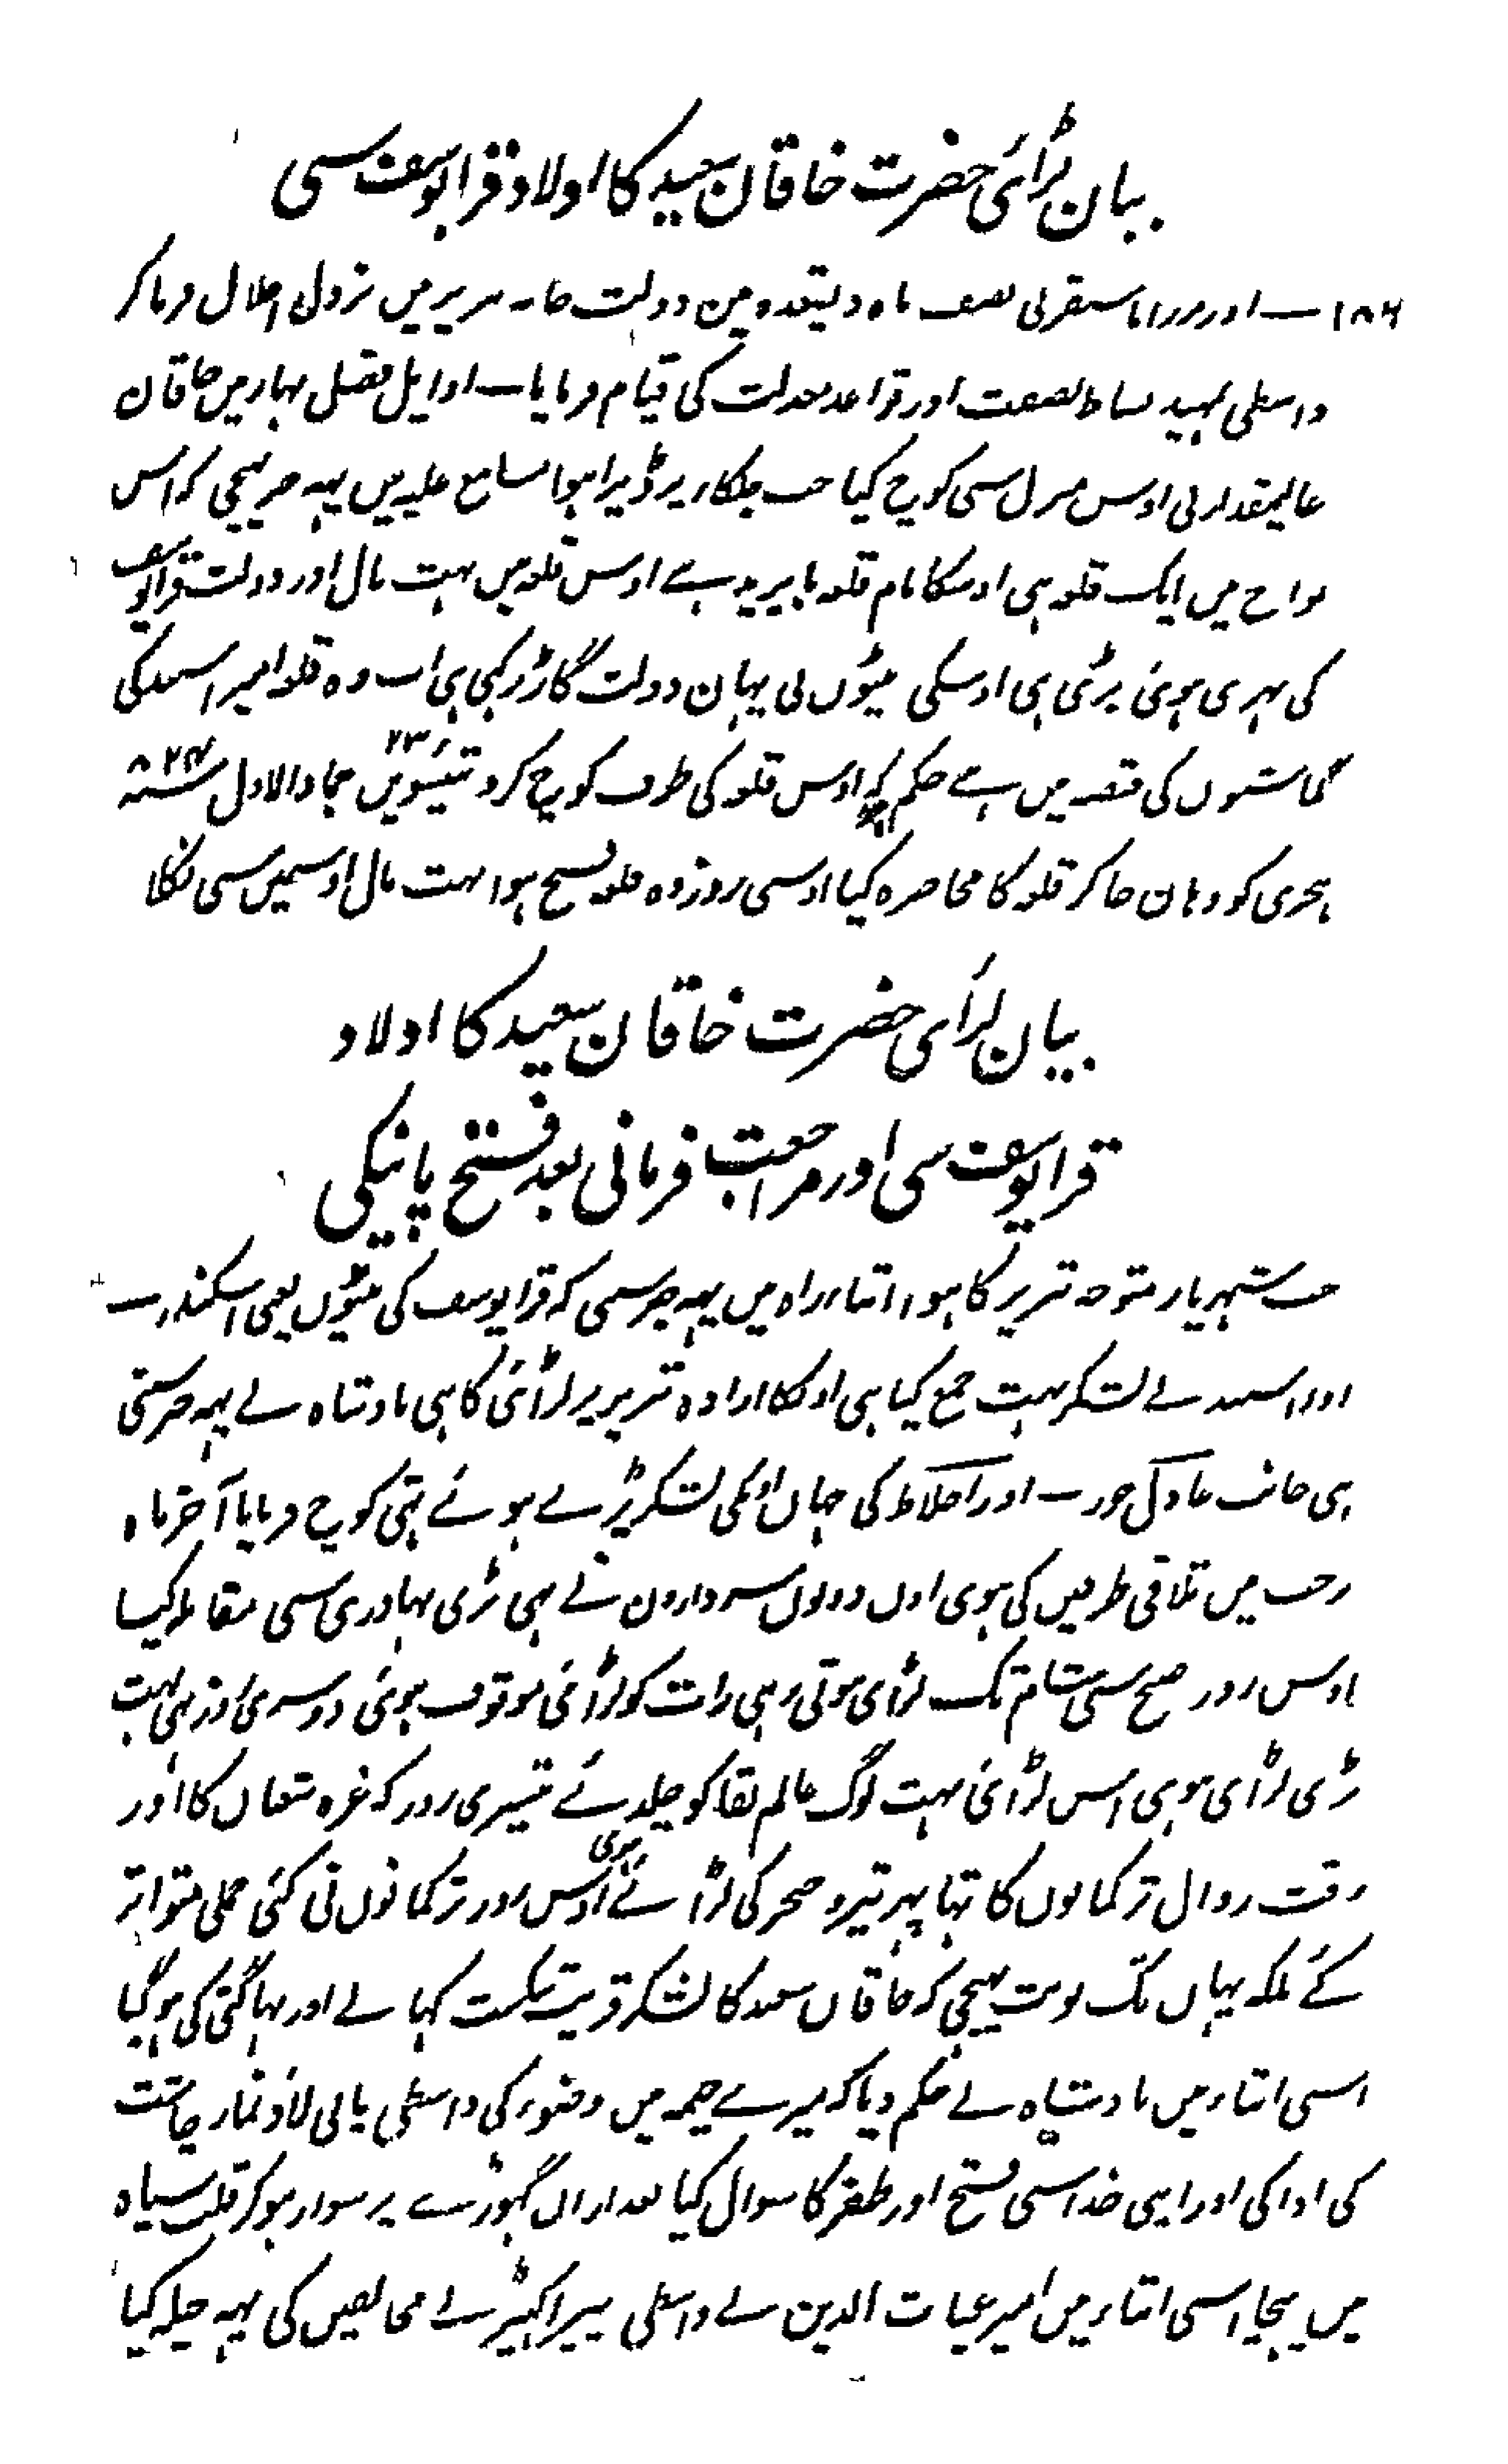 بیان لڑائی حضرت خاقان سعید کا اولاد قرا یوسف سی
۱۸۶ اور مرزا بایسنقر نی نصف ماہ ذیقعدہ میں دولت خانہ تبریز میں نزول اجلال فرما کر
واسطی تمہید بساط نصفت اور قواعد معدلت کی قیام فرمایا اوایل فصل بہار میں خاقان
عالیمقدار نی اوس منزل سی کوچ کیا جب پر ڈیرا ہوا مسامع علیہ میں یہہ خبر پہنچی کہ اس
نواح میں ایک قلعہ ہی اوسکا نام قلعہ بایزید ہے اوس قلعہ میں بہت مال اور دولت قرا یوسف
کی بہری ہوئی پڑی ہی اوسکی بیٹوں نی یہان دولت گاڑ رکہی ہی اب وہ قلعہ امیر اسپند کی
گماشتوں کی قبضہ میں ہے حکم کہ اوس قلعہ کی طرف کوچ کرو تیئسویں ۲۳ جماد الاول سنہ ۸۲۴
ہجری کو وہان جا کر قلعہ کا محاصرہ کیا اوسی روز وہ قلعہ فتح ہوا بہت مال اوسمیں سی نکلا
بیان لڑائی حضرت خاقان سعید کا اولاد
قرا یوسف سی اور مراجعت فرمانی بعد فتح پانیکی
جب شہریار متوجہ تبریز کا ہوا اثناء راہ میں یہہ خبر سنی کہ قرا یوسف کی بیٹوں یعنی اسکندر
اور اسپند نے لشکر بہت جمع کیا ہی اونکا ارادہ تبریز پر لڑائی کا ہی بادشاہ نے یہہ خبر سنتی
ہی جانب اور اخلاط کی جہاں اونکی لشکر پڑے ہوئے تہی کوچ فرمایا آخر ماہ
رجب میں تلاقی طرفین کی ہوی اول دونوں سردارون نے ہی بڑی بہادری سی مقابلہ کیا
اوس روز صبح سی شام تک لڑای ہوتی رہی رات کو لڑائی موقوف ہوئی دوسری روز بہی بہت
بڑی لڑای ہوی اس لڑائی بہت لوگ عالم بقا کو چلدئے تیسری روز کہ غرہ شعبان کا اور
وقت زوال ترکمانوں کا تہا پہر تیر و خنجر کی لڑائے ہوی اوس روز ترکمانوں نی کئی حملی متواتر
کئے بلکہ یہاں تک نوبت پہنچی کہ خاقاں سعید کا لشکر قریب شکست کہانے اور بہاگنی کی ہو گیا
اسی اثناء میں بادشاہ نے حکم دیا کہ میرے خیمہ میں وضو کی واسطی پانی لاؤ نماز چاشت
کی ادا کی اور اپنی خدا سی فتح اور ظفر کا سوال کیا بعد ازاں گہوڑے پر سوار ہو کر قلب سپاہ
میں پہنچا اسی اثناء میں امیر غیاث الدین نے واسطی پیر اکہیڑنے مخالفیں کی یہہ حیلہ کیا